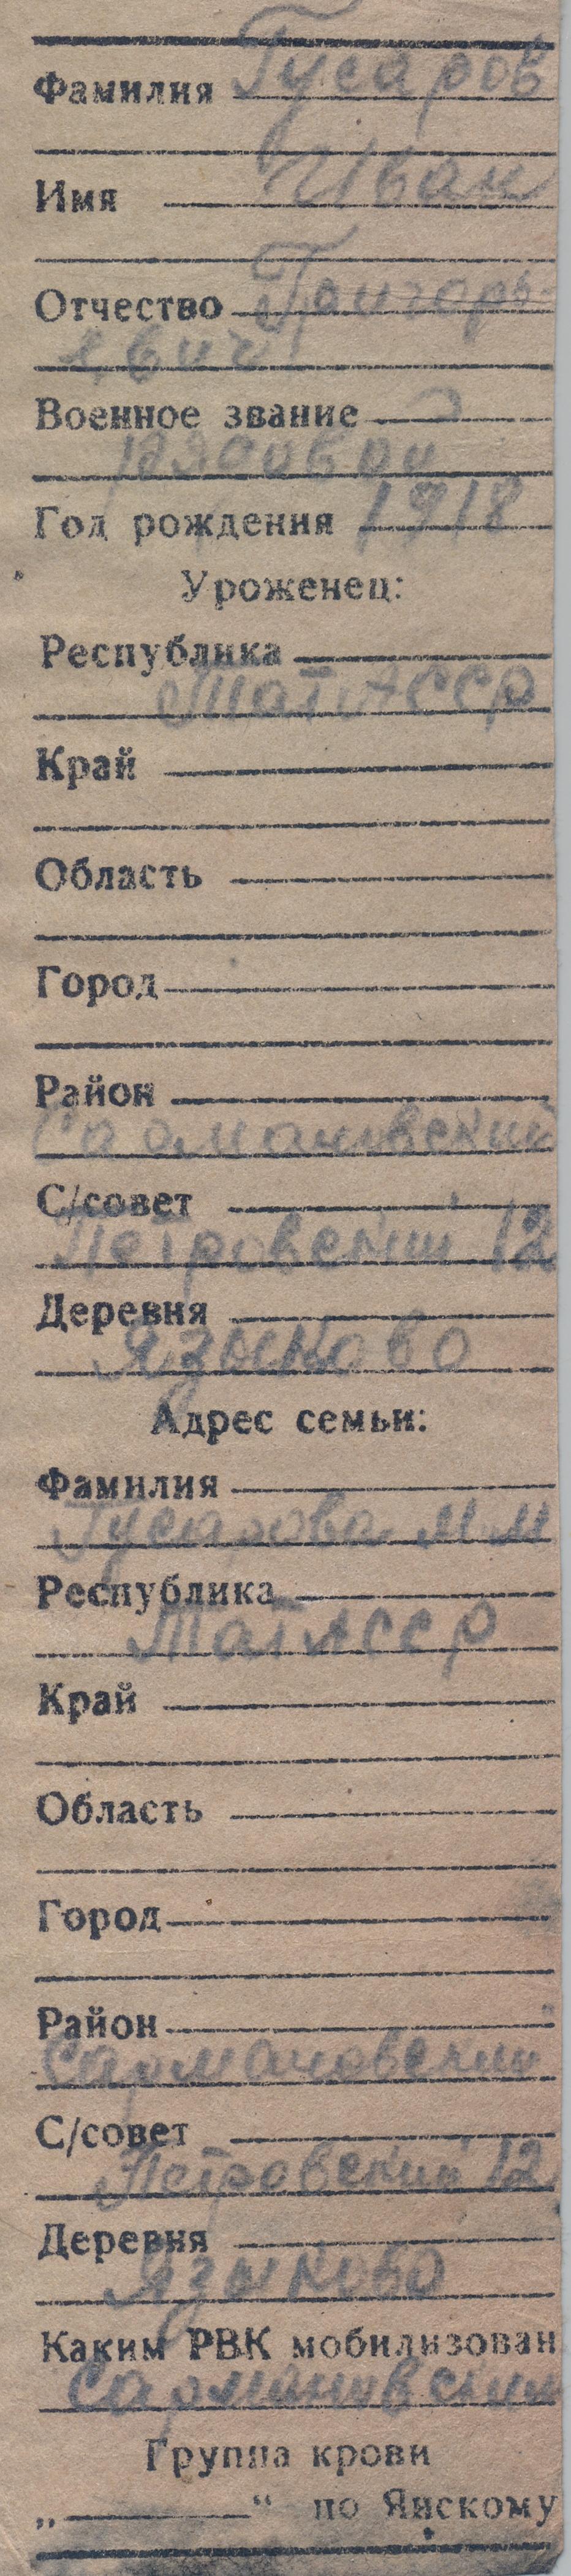 Фамилия Гусаров
Имя Иван
Отчество Григорь-
евич
Военное звание
рядовой
Год рождения 1918
Уроженец:
Республика
Тат.АССР
Край
Область
Город
Район
Сармановский
С/совет
Петровский 12
Деревня
Языково
Адрес семьи:
Фамилия
Гусарова М М
Республика
ТатАССР
Край
Область
Город
Район
Сармановский
С/совет
Петровский 12
Деревня
Языково
Каким РВК мобилизован
Сармановским
Группа крови
„ “ по Янскому